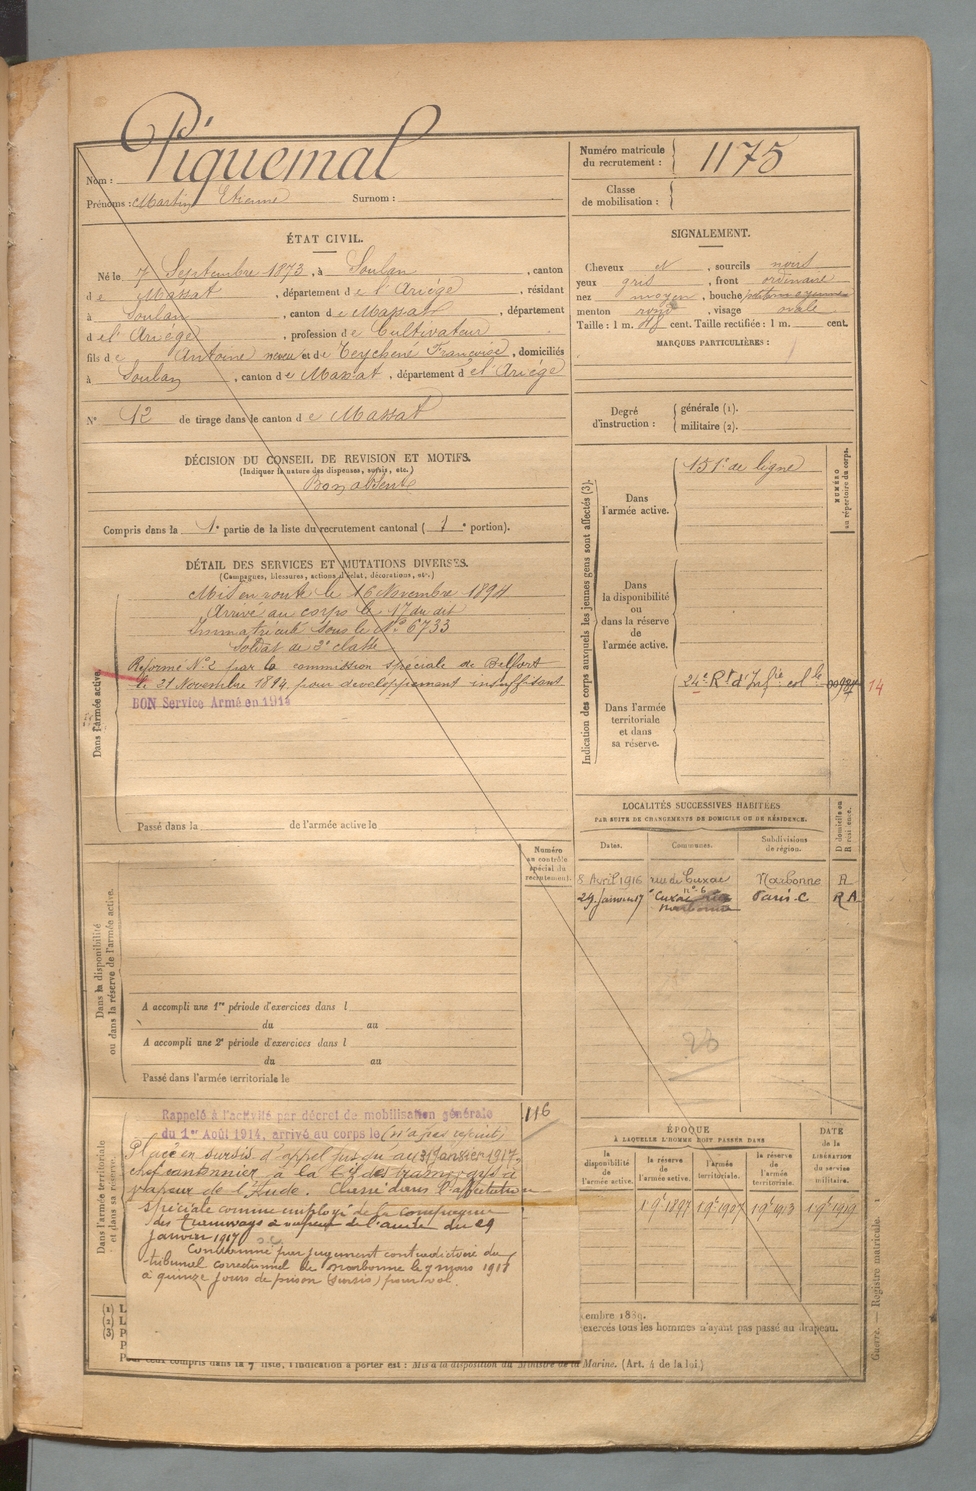 Nom : Piquemal
Prénoms : Martin Etienne Surnom :
Numéro matricule du recrutement : 1175
Classe de mobilisation :
ÉTAT CIVIL.
Né le 7 Septembre 1873, à Soulan, canton
de Massat, département de l'Ariège, résidant
à Soulan, canton de Massat, département
de l'Ariège, profession de Cultivateur
fils de Antoine et de Teychené Françoise, domiciliés
à Soulan, canton de Massat, département de l'Ariége
N° 12 de tirage dans le canton de Massat
SIGNALEMENT.
Cheveux et, sourcils noirs
yeux gris, front ordinaire
nez moyen, bouche
menton rond, visage ovale
Taille : 1 m. cent. Taille rectifiée : 1 m. cent.
MARQUES PARTICULIÈRES :
Degré d'instruction : générale (1). militaire (2).
DÉCISION DU CONSEIL DE REVISION ET MOTIFS.
(Indiquer la nature des dispenses, sursis, etc.)
Bon absent
Compris dans la 1e partie de la liste du recrutement cantonal (1e portion).
DÉTAIL DES SERVICES ET MUTATIONS DIVERSES.
(Campagnes, blessures, actions d'éclat, décorations, etc.)
Dans l'armée active.
Mis en route le 16 Novembre 1894
Arrivé au corps le 17 du dit
Immatriculé sous le N° 6733
Soldat de 2e classe
Réformé N° 2 par la commission spéciale de Belfort
le 21 Novembre 1894 pour développement insuffisant
BON Service Armé en 1914
Passé dans la de l'armée active le
Indication des corps auxquels les jeunes gens sont affectés (3).
NUMÉRO au répertoire du corps.
Dans l'armée active.
151e de ligne
Dans la disponibilité ou dans la réserve de l'armée active.
Dans l'armée territoriale et dans sa réserve.
24e Rt d'Infie colle
14
LOCALITÉS SUCCESSIVES HABITÉES
PAR SUITE DE CHANGEMENTS DE DOMICILE OU DE RÉSIDENCE.
Dates. Communes. Subdivisions de région. D domicile ou R résidence.
8 Avril 1916 rue de Cuxac n° 6 Narbonne R
29 Janvier 17 Paris-C R A
28
Dans la disponibilité ou dans la réserve de l'armée active.
Numéro au contrôle spécial du recrutement.
A accompli une 1re période d'exercices dans l
du au
A accompli une 2e période d'exercices dans l
du au
Passé dans l'armée territoriale le
Dans l'armée territoriale et dans sa réserve.
116
Rappelé à l'activité par décret de mobilisation générale
du 1er Août 1914, arrivé au corps le (n'a pas rejoint)
Placé en sursis d'appel jusqu'au 31 Janvier 1917,
chef cantonnier à la Cie des tramways à
vapeur de l'Aude. Classé dans l'affectation
spéciale comme employé de la Compagnie
des tramways à vapeur de l'Aude du 29
janvier 1917
Condamné par jugement contradictoire du
tribunal correctionnel de Narbonne le 7 mars 1918
à quinze jours de prison (sursis) pour vol.
ÉPOQUE
À LAQUELLE L'HOMME DOIT PASSER DANS
la disponibilité de l'armée active. la réserve de l'armée active. l'armée territoriale. la réserve de l'armée territoriale.
DATE de la LIBÉRATION du service militaire.
1 9e 1897 1 9e 1907 1 9e 1913 1 9e 1919
(1) L
(2) L
(3) P
embre 1889.
exercés tous les hommes n'ayant pas passé au drapeau.
Pour ceux compris dans la 7e liste, l'indication à porter est : Mis à la disposition du Ministre de la Marine. (Art. 4 de la loi.)
Guerre. — Registre matricule. 1